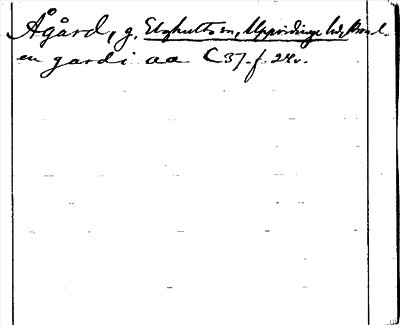 Ågård, g. Elghults sn, Uppvidinge hd, Kron. l.
en gard i aa C 37. f. 24v.